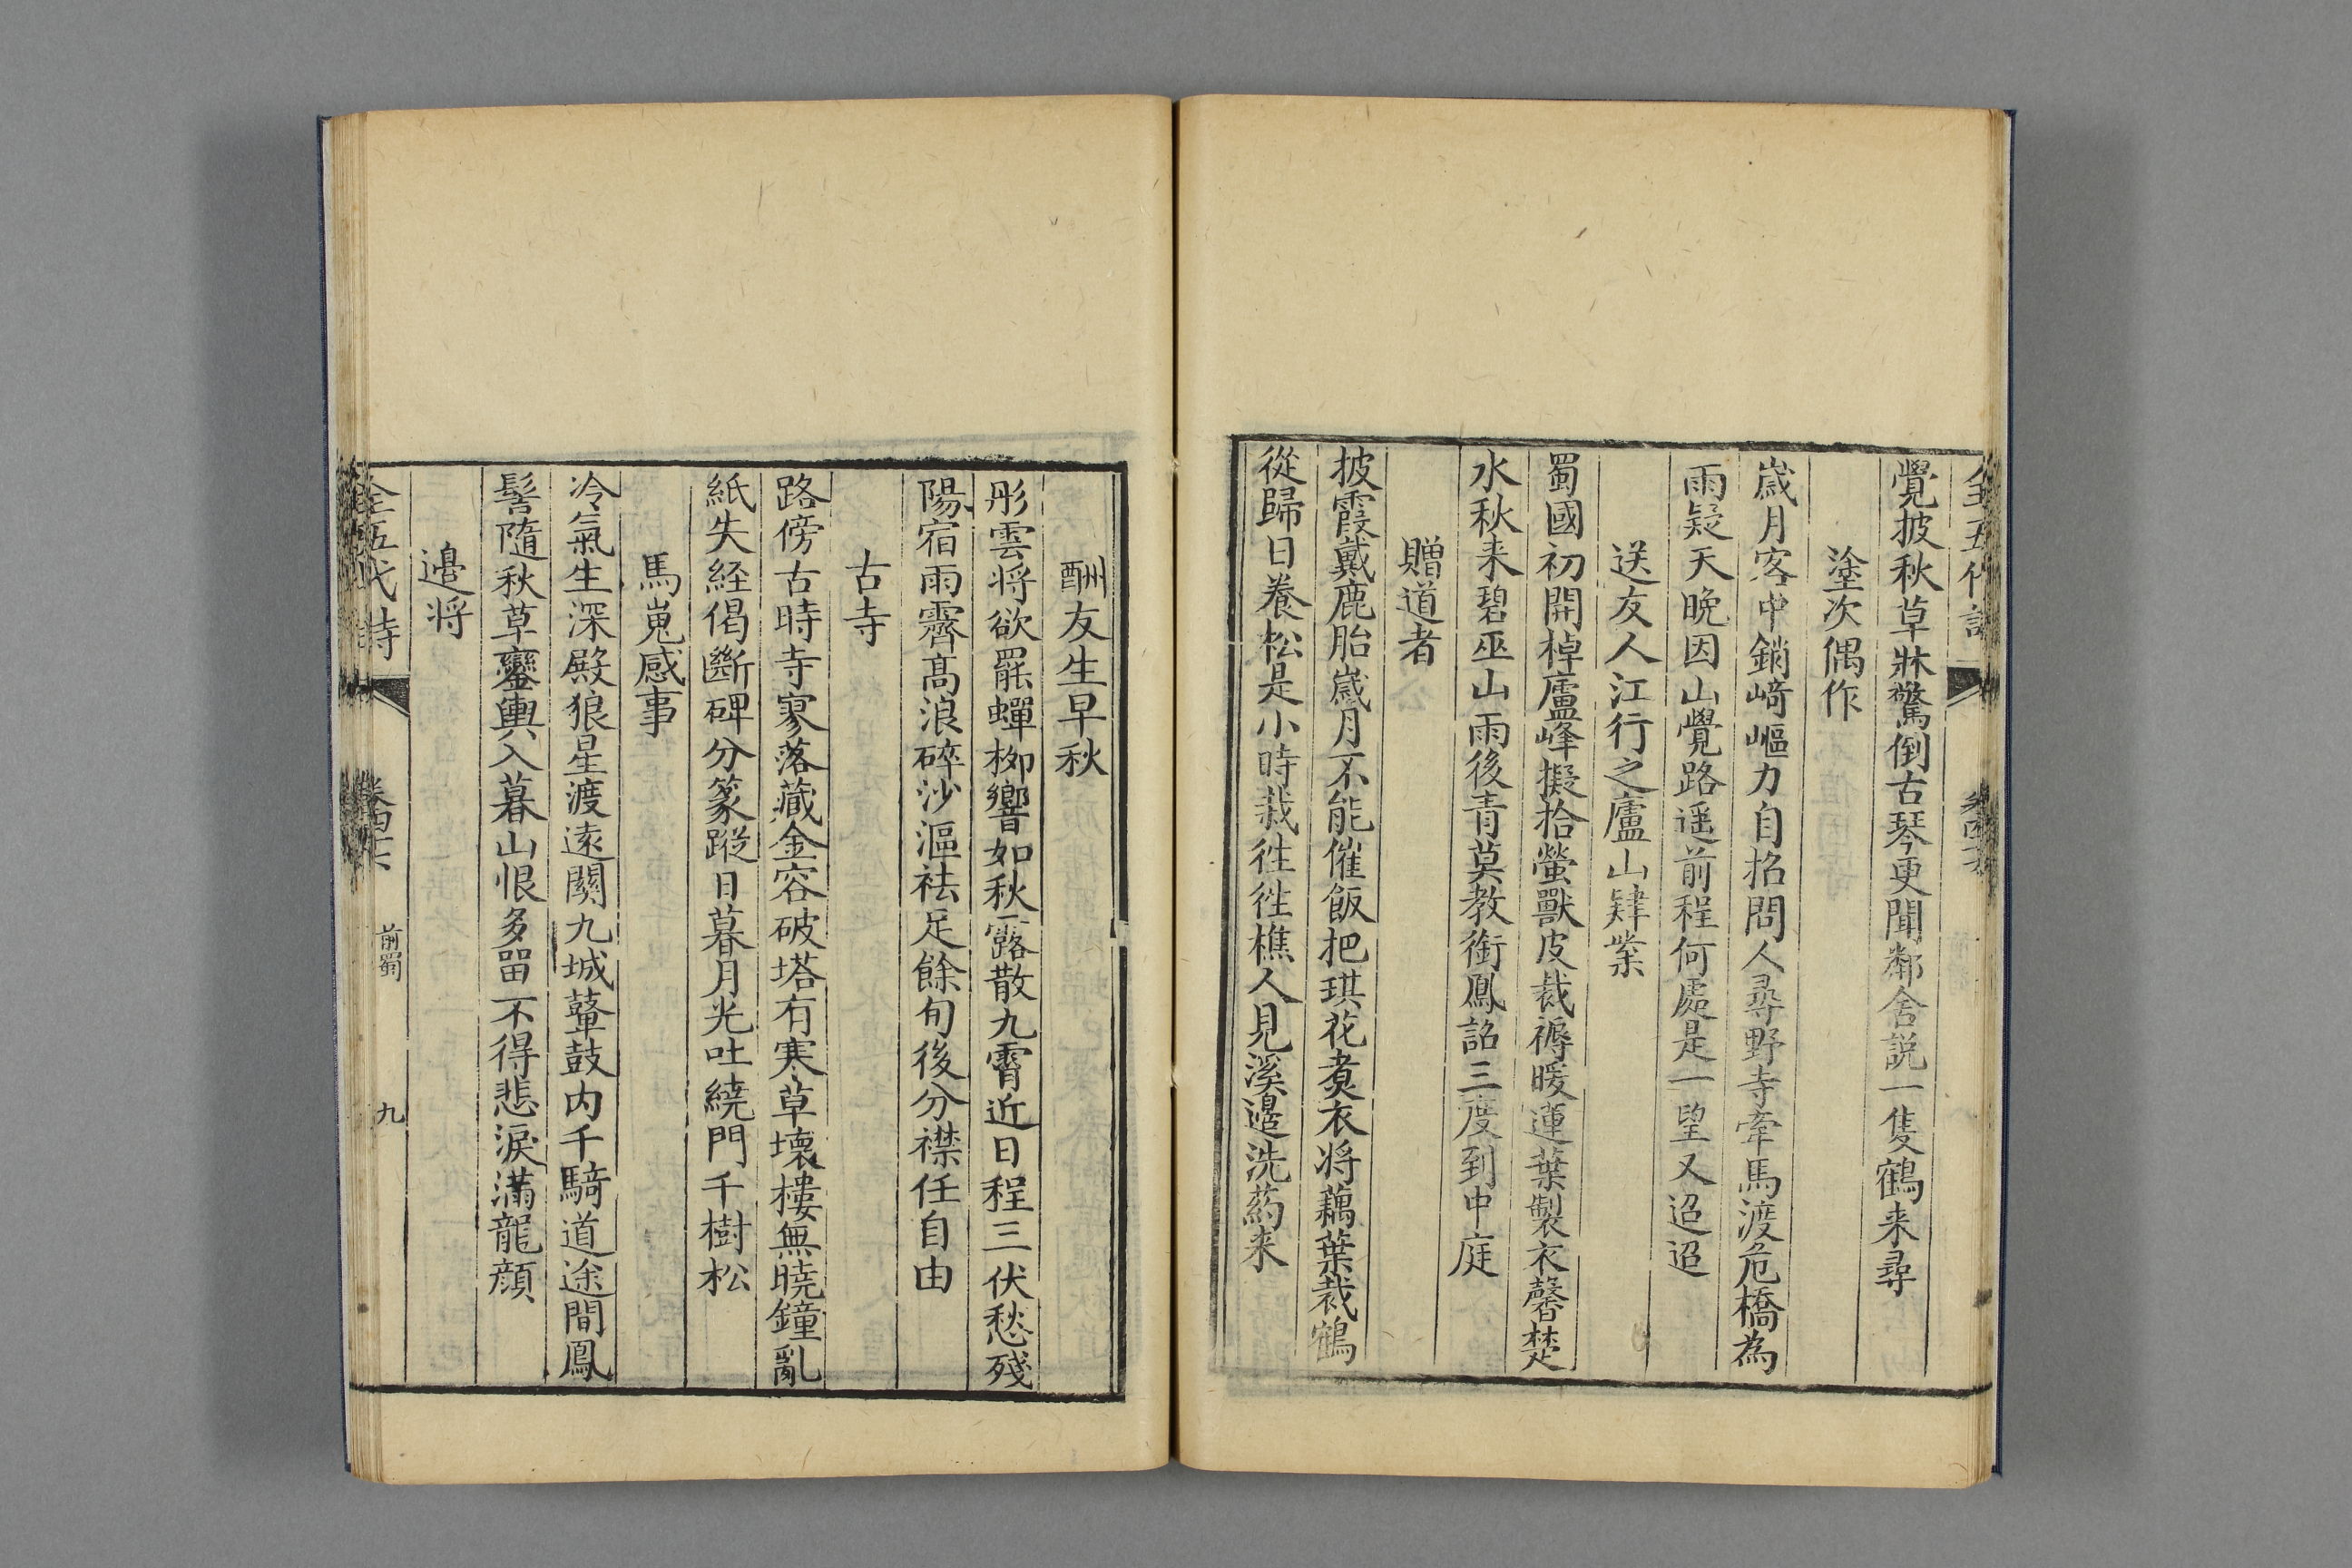 全五代詩
覺披秋草牀驚倒古琴更聞鄰舍説一隻鶴来尋
塗次偶作
嵗月客中銷崎嶇力自招問人尋野寺牽馬渡危橋為
雨疑天晚因山覺路遥前程何處是一望又迢迢
送友人江行之廬山肄業
蜀國初開棹廬峰擬拾螢獸皮裁褥暖蓮葉製衣馨楚
水秋来碧巫山雨後青莫教銜鳳詔三度到中庭
贈道者
披霞戴鹿胎嵗月不能催飯把琪花煮衣将藕葉裁鶴
從歸日養松是小時栽徃徃樵人見溪邉洗葯来
酬友生早秋
彤雲将欲罷蟬栁響如秋露散九霄近日程三伏愁殘
陽宿雨霽髙浪碎沙漚袪足餘旬後分襟任自由
古寺
路傍古時寺寥落藏金容破塔有寒草壞樓無曉鐘亂
紙失経偈斷碑分篆蹤日暮月光吐繞門千樹松
馬嵬感事
冷氣生深殿狼星渡遠關九城鼙鼓内千騎道途間鳳
髻隨秋草鑾輿入暮山恨多留不得悲淚滿龍顔
邉将
全五代詩
前蜀
九